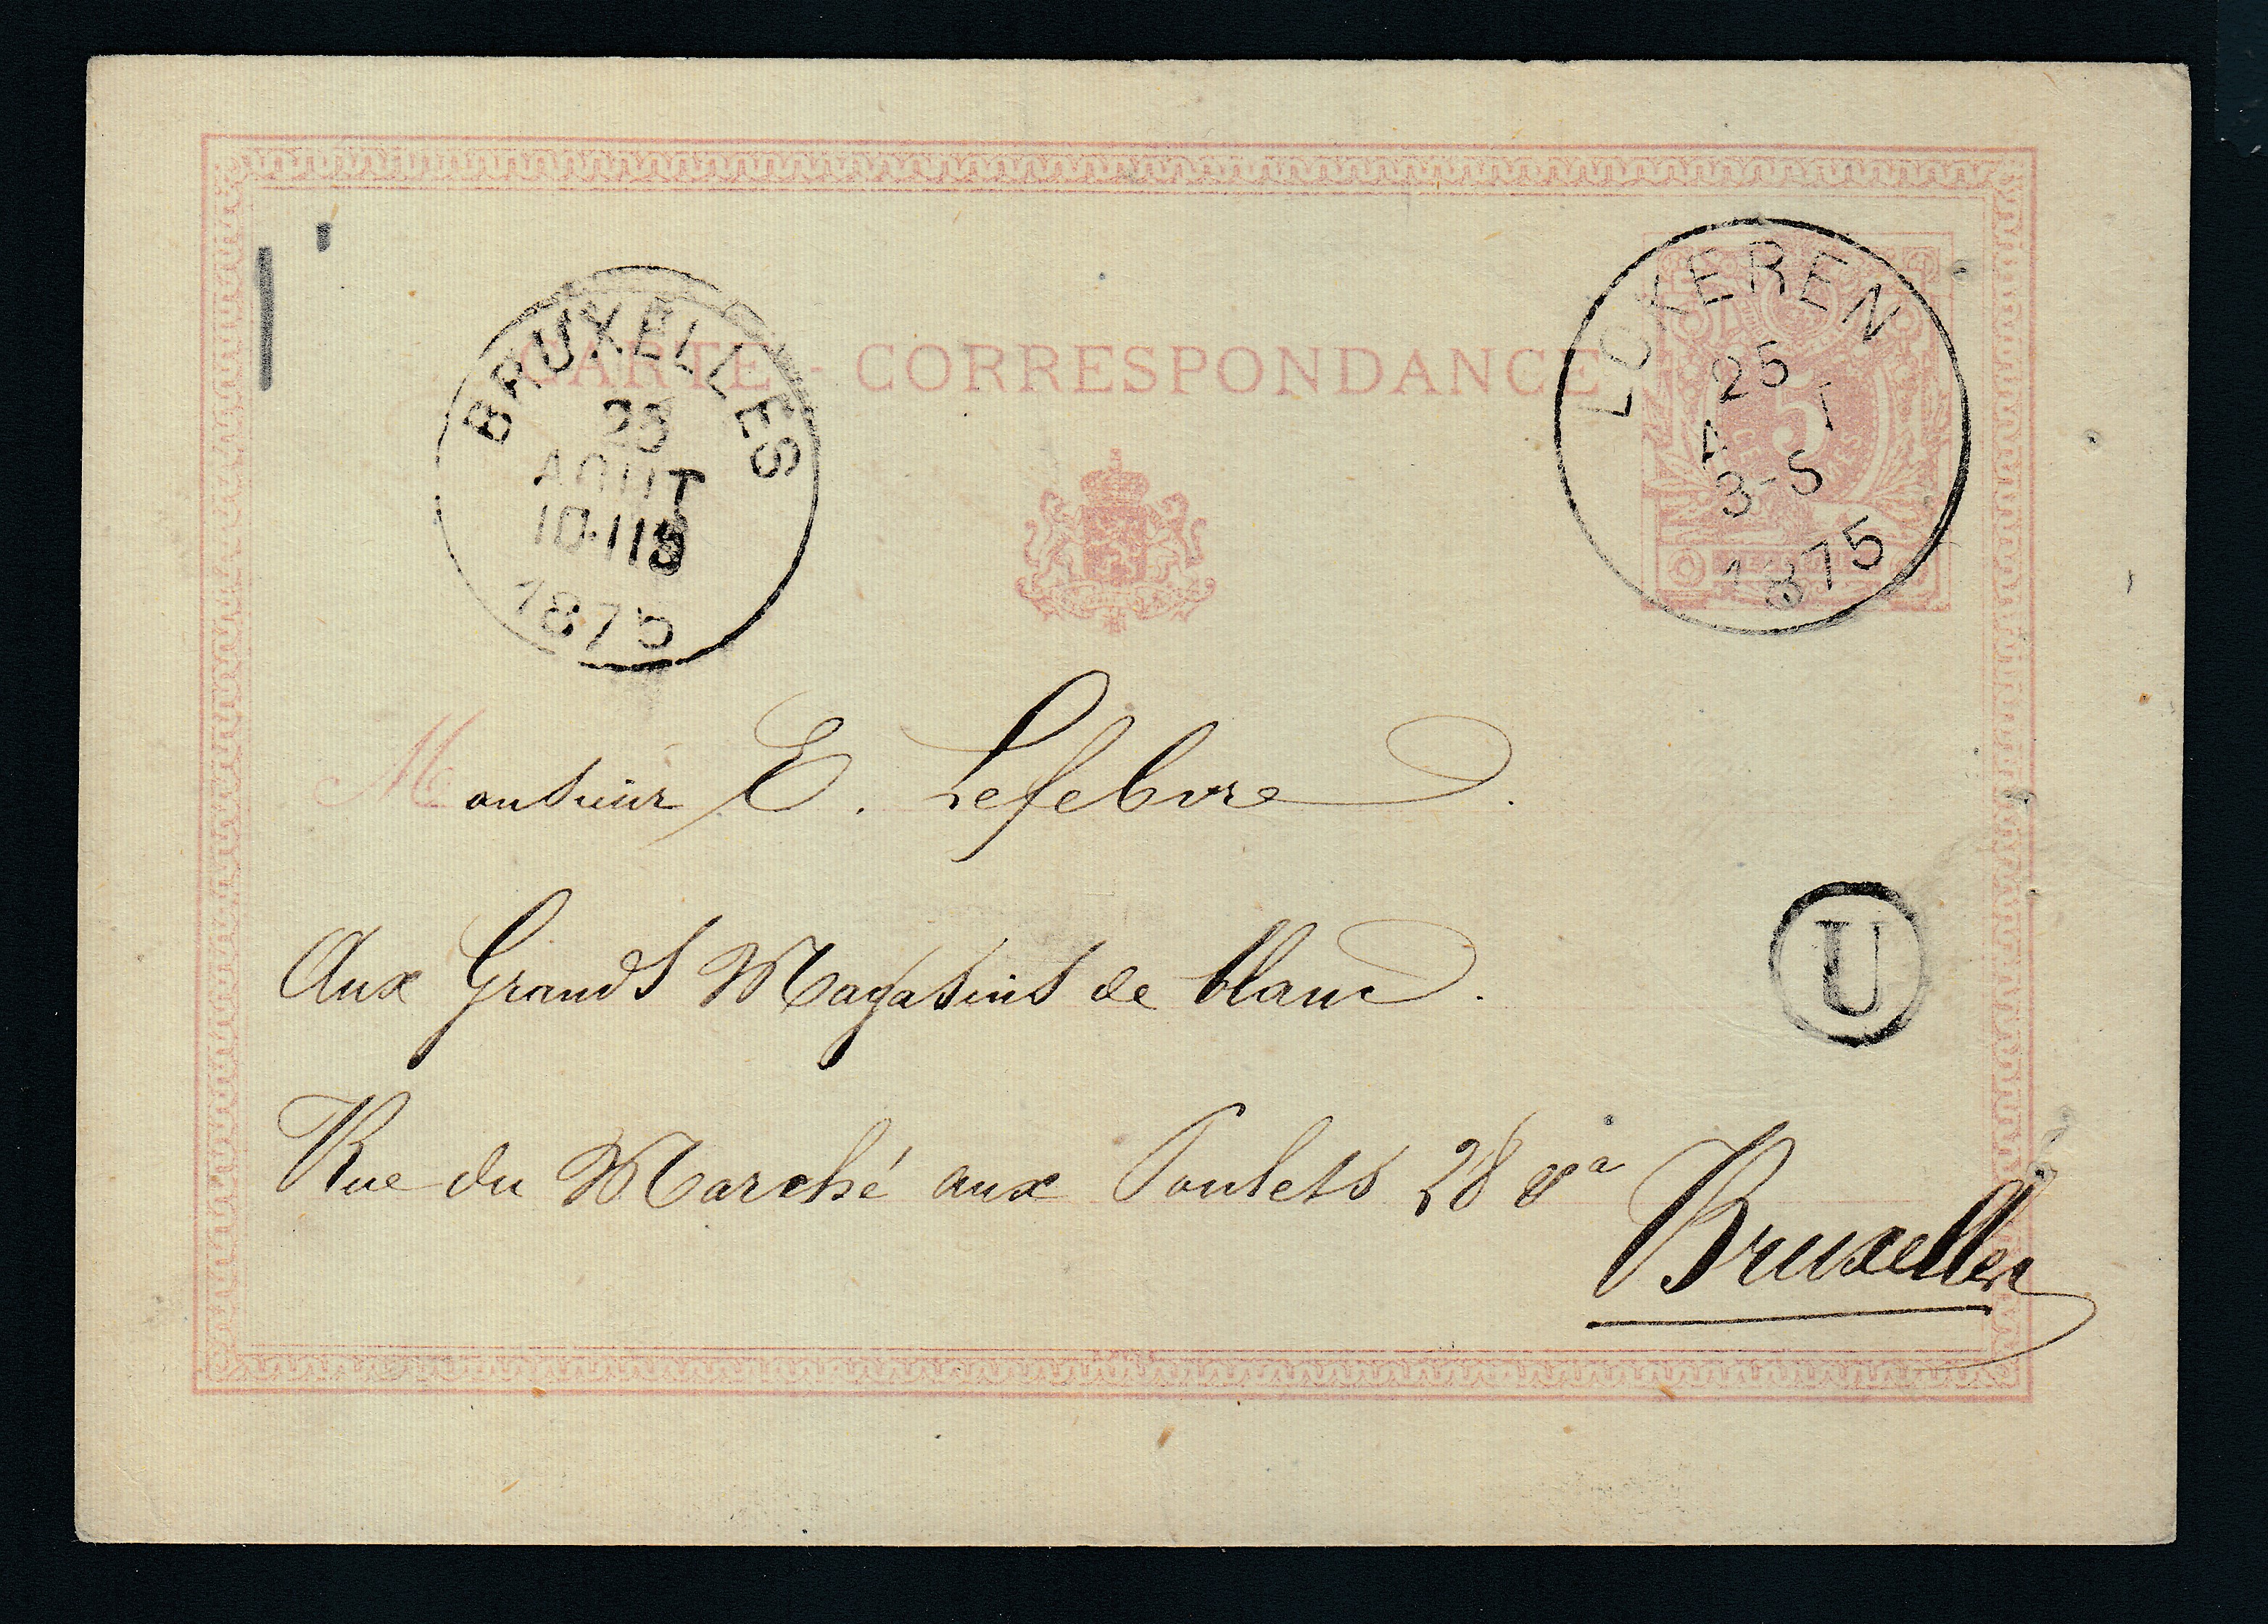 CARTE - CORRESPONDANCE
BRUXELLES
25
AOUT
10-11 S
1875
LOKEREN
25
A T
3-5
1875
5
CENTIMES
Monsieur E. Lefebvre.
Aux Grands Magasins de blanc.
U
Rue du Marché aux Poulets 28
Bruxelles